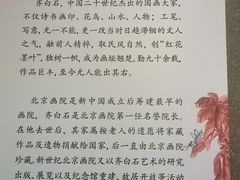 齐白石,中国二十世纪杰出的国画大家,
不仅诗书画印、花鸟、山水、人物;工笔、
写意,无一不能,更一改当时日趋滞弱的文人
之气,融前人精粹,取民风自然,创“红花
墨叶”,独树一帜,成为画坛翘楚。勤九十余载,
作品巨丰,至今无人能出其右。
北京画院是新中国成立后筹建最早的
画院,齐白石是北京画院第一任名誉院长。
在他去世后,其家属按老人的遗愿将家藏
作品及遗物捐献给国家,后一直由北京画院
珍藏。新世纪北京画院又以齐白石艺术的研究
出版、展览以及纪念馆重建、故居开放等活动